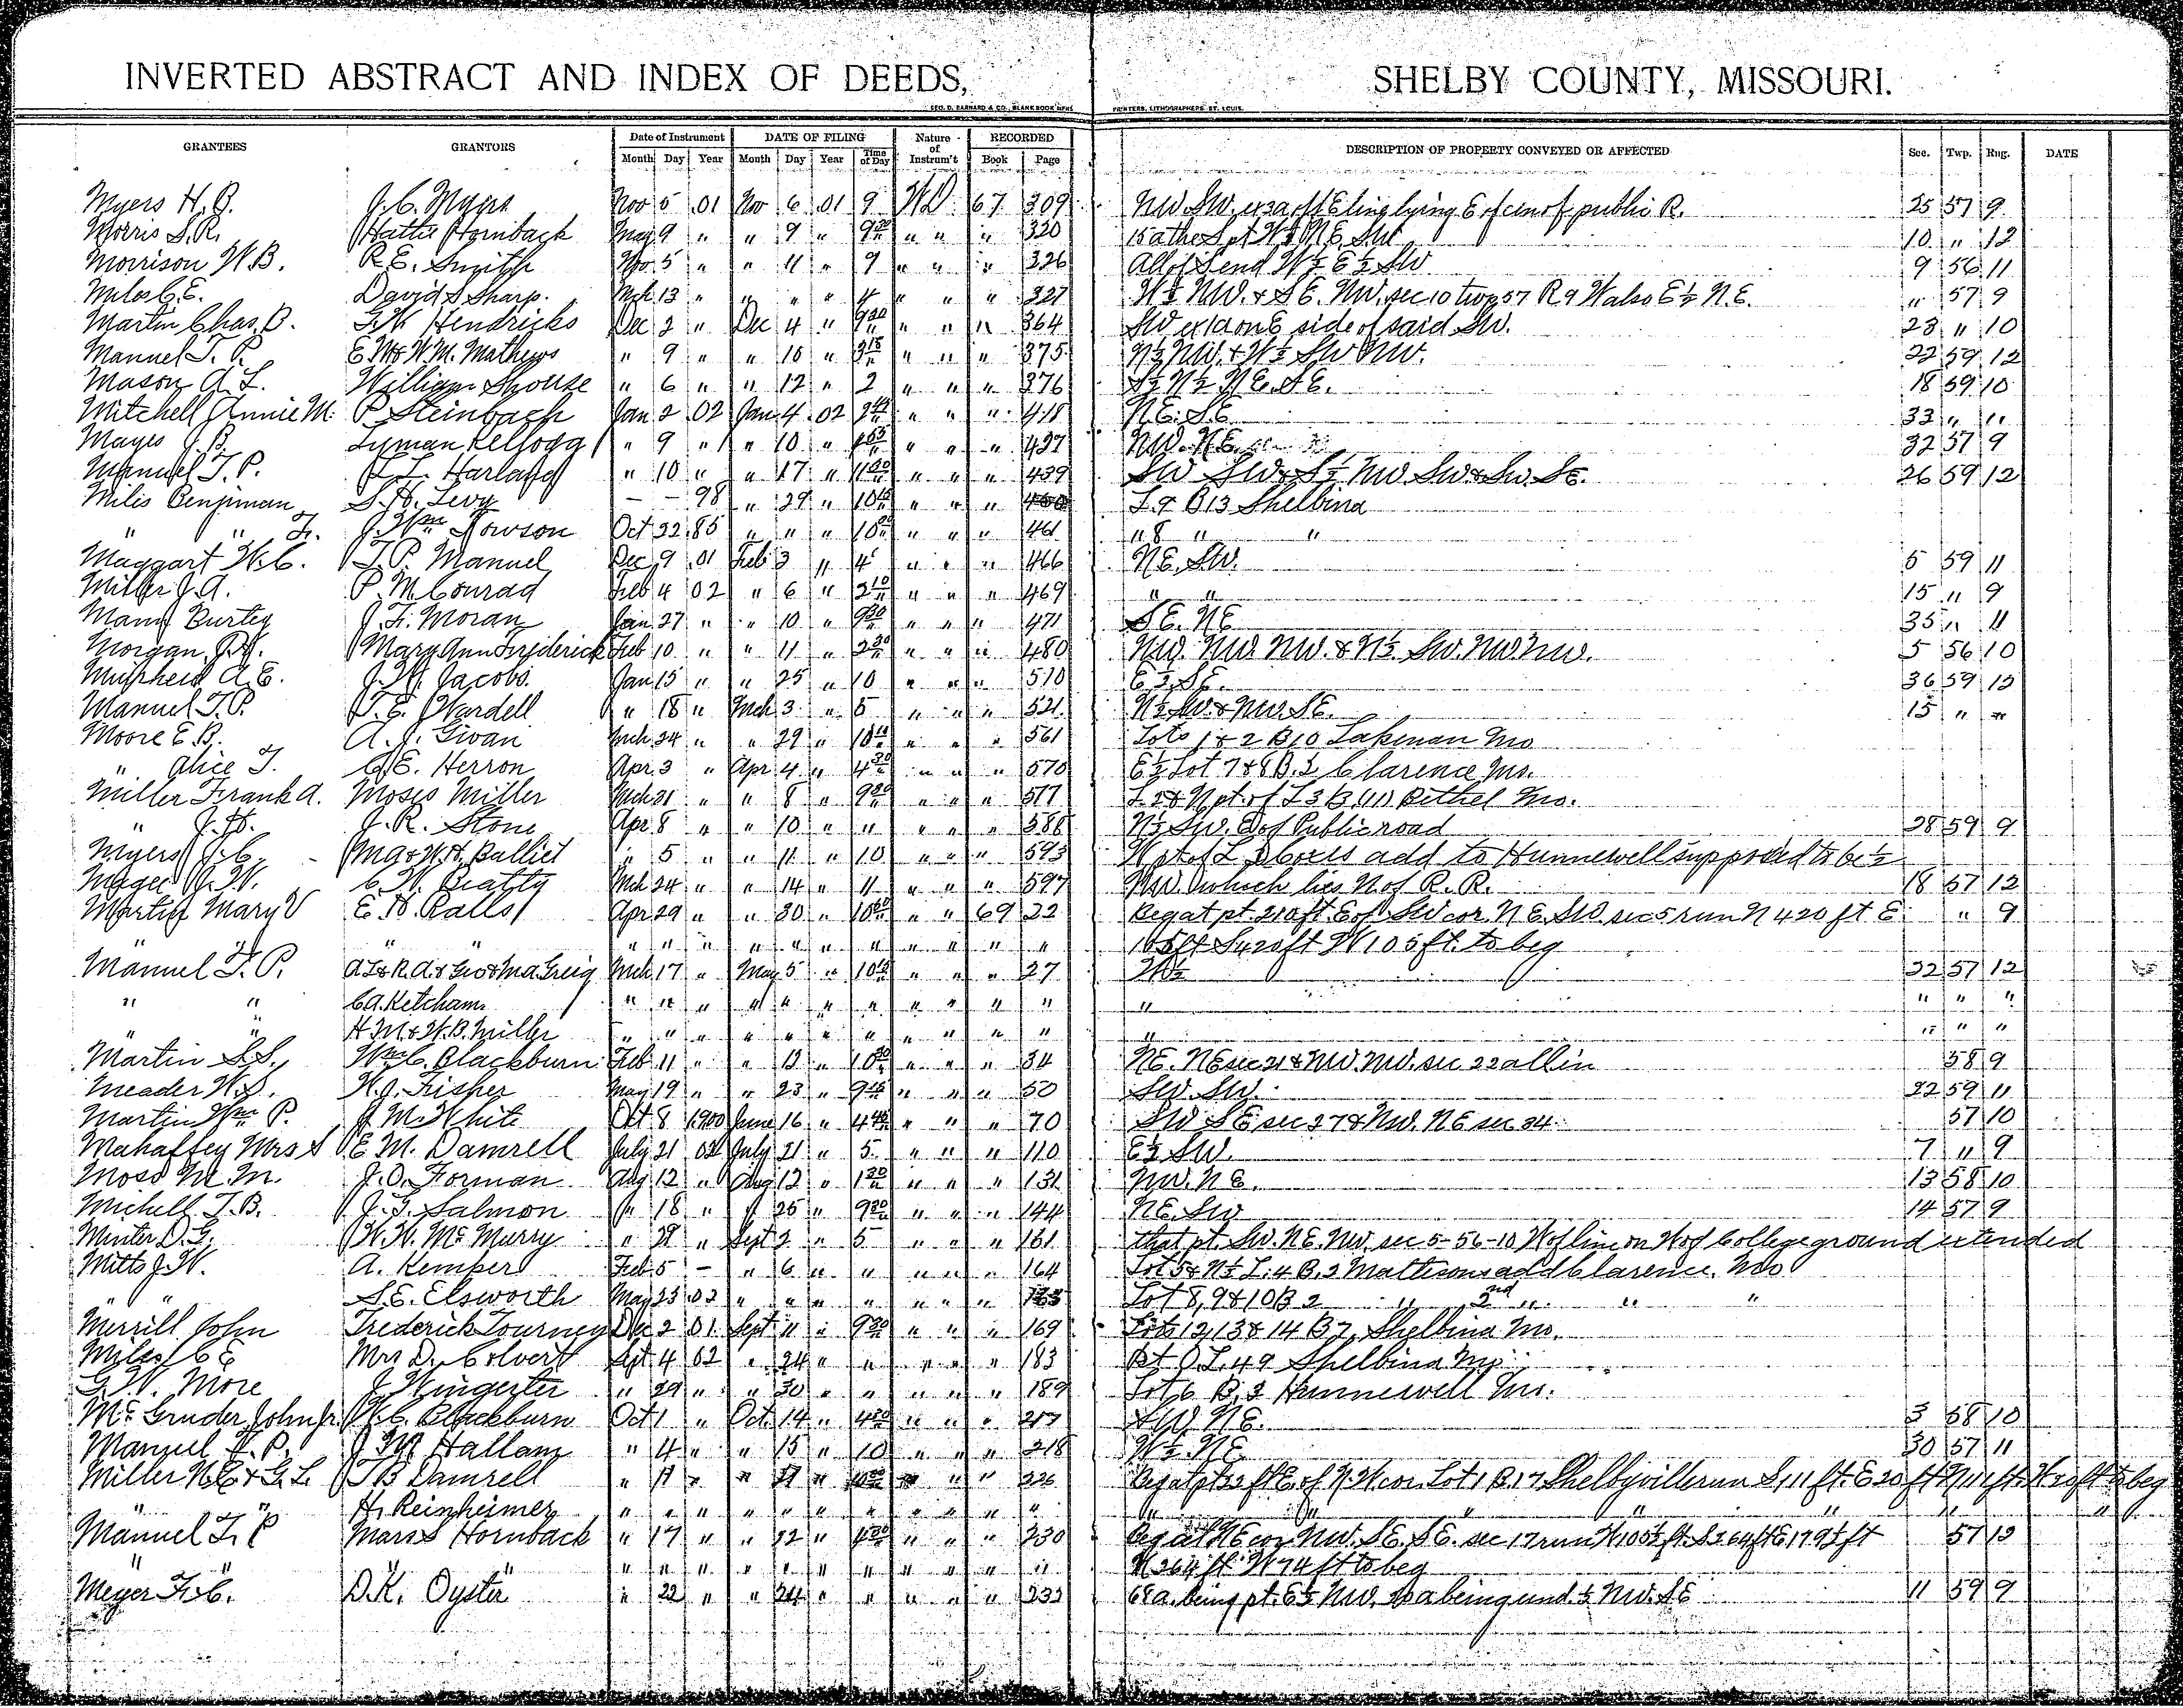 INVERTED ABSTRACT AND INDEX OF DEEDS, SHELBY COUNTY, MISSOURI.
GEO. D. BARNARD & CO., BLANK BOOK MFRS PRINTERS, LITHOGRAPHERS, ST. LOUIS.
GRANTEES GRANTORS Date of Instrument DATE OF FILING Nature of Instrum't RECORDED DESCRIPTION OF PROPERTY CONVEYED OR AFFECTED Sec. Twp. Rng. DATE
Month Day Year Month Day Year Time of Day Book Page
Myers H. B. J. C. Myers Nov 5 01 Nov 6 01 9 WD 67 309 NW. SW. lying E of public R. 25 57 9
Morris S. R. Hattie Hornback May 9 " " 9 " 9 " " " 320 NE SW 10 " 12
Morrison W. B. R. E. Smith Nov 5 " " 11 " 9 " " " 326 All of S end W½ E½ SW 9 56 11
Miles C. E. David S Sharp. Mch 13 " " " " 4 " " " 327 W½ NW. & SE. NW. sec 10 twp 57 R 9 W also E½ N.E. " 57 9
Martin Chas. B. G. W Hendricks Dec 2 " Dec 4 " 9 " " " 364 SW ex 1a on E side of said SW. 23 " 10
Manuel T. P. E M & W. M. Mathews " 9 " " 10 " 3 " " " 375 N½ NW. & W½ SW NW. 22 59 12
Mason A. L. William Shouse " 6 " " 12 " 2 " " " 376 S½ N½ NE. SE. 18 59 10
Mitchell Annie M. P. Steinbach Jan 2 02 Jan 4 02 " " " 418 N.E. S.E. 33 " "
Mayes J. B. Lyman Kellogg " 9 " " 10 " " " " 437 NW. NE. 32 57 9
Manuel T. P. Harland " 10 " " 17 " 11 " " " 439 SW SW & S½ NW SW & SW. SE. 26 59 12
Miles Benjiman S. H. Levy — — 98 " 29 " 10 " " " L 9 B 13 Shelbina
" " J. Wm Towson Oct 22 85 " " " 10 " " " 461 " 8 " "
Maggart W. C. T. P. Manuel Dec 9 01 Feb 3 " 4 " " " 466 NE. SW. 5 59 11
Miller J. A. P. M. Conrad Feb 4 02 " 6 " 2 " " " 469 " " 15 " 9
Mann Burtey J. F. Moran Jan 27 " " 10 " 9 " " " 471 SE. NE 35 " 11
Morgan Mary Ann Frederick Feb 10 " " 11 " 2 " " " 480 NW. NW. NW. & N½ SW. NW NW. 5 56 10
Muirheid A. E. J. Jacobs. Jan 15 " " 25 " 10 " " " 510 E½ SE. 36 59 12
Manuel T. P. T. E. Wardell " 18 " Mch 3 " 5 " " " 521 N½ SW. & NW. SE. 15 " "
Moore E. B. A. J. Givan Mch 24 " " 29 " 10 " " " 561 Lots 1 & 2 B 10 Lakenan Mo
" Alice T. C. E. Herron Apr. 3 " Apr 4 " 4 " " " 570 E½ Lot 7 & 8 B. 2 Clarence Mo.
Miller Frank A. Moses Miller Mch 31 " " 8 " 9 " " " 577 L 2 & N pt. of L 3 B Bethel Mo.
" J. H. J. R. Stone Apr. 8 " " 10 " " " " " 588 N½ SW. E of Public road 28 59 9
Myers J. C. & W. H. Balliet " 5 " " 11 " 10 " " " 593 W pt of L add to Hunnewell supposed to be ½
Magee J. W. C. W. Beatty Mch 24 " " 14 " 11 " " " 597 NW. which lies N of R. R. 18 57 12
Martin Mary V E. H. Ralls Apr 29 " " 30 " 10 " " 69 22 Beg at pt 210 ft. E of SW cor. N E. SW. sec 5 run N 420 ft E " 9
" " " " " " " " " " " " " 105 ft S 420 ft W 105 ft. to beg
Manuel T. P. A L & R. A. & Geo & M A. Greig Mch 17 " May 5 " 10 " " " 27 W½ 32 57 12
" " C A. Ketcham " " " " " " " " " " " " " " "
" " H. M. & W. B. Miller " " " " " " " " " " " " " " "
Martin S. S. Wm C. Blackburn Feb 11 " " 12 " 10 " " " 34 NE. NE sec 21 & NW. NW. sec 22 all in 58 9
Meader W. S. H. J. Fisher May 19 " " 23 " 9 " " " 50 SW. SW. 32 59 11
Martin Wm P. J. M. White Oct 8 1900 June 16 " 4 " " " 70 SW SE sec 27 & NW. NE sec 34. 57 10
Mahaffey Mrs S E. M. Damrell July 21 02 July 21 " 5 " " " 110 E½ SW. 7 " 9
Moss M. M. J. O. Forman Aug 12 " Aug 12 " 1 " " " 131 NW. NE. 13 58 10
Michell T. B. J. G. Salmon " 18 " " 25 " 9 " " " 144 NE. SW 14 57 9
Minter D. G. W. W. McMurry " 29 " Sept 2 " 5 " " " 161 that pt. SW. NE. NW. sec 5-56-10 W of line on W of College ground extended
Mitts J. W. A. Kemper Feb 5 — " 6 " " " " " 164 Lot 5 & N½ L. 4 B. 2 Mattisons add Clarence, Mo
" " S. E. Elsworth May 23 02 " " " " " " " Lot 8, 9 & 10 B 2 " 2nd " " "
Merrill John Frederick Tourney Dec 2 01 Sept 11 " 9 " " " 169 Lots 12, 13 & 14 B 7 Shelbina Mo.
Miles C E Mrs D. Colvert Sept 4 02 " 24 " " " " " 183 Pt O. L. 49 Shelbina Mo
G. W. More J Wingerter " 29 " " 30 " " " " " 189 Lot 6 B. 2 Hunnewell Mo.
McGruder John jr. W. C. Blackburn Oct 1 " Oct. 14 " 4 " " " 217 SW. NE. 3 58 10
Manuel T. P. J M Hallam " 4 " " 15 " 10 " " " 218 W½ NE 30 57 11
Miller N. E. & G. L. T B Damrell " 17 " " " " " " 226 Beg at pt 22 ft E. of N. W cor. Lot 1 B. 17 Shelbyville run S, 111 ft. E 20 ft N 111 ft. W 20 ft to beg
" " H. Reinheimer " " " " " " " " " " " " " " " "
Manuel T. P Mars S Hornback " 17 " " 22 " 4 " " " 230 Beg at NE cor NW. SE. SE. sec 17 run W 105½ ft. S 264 ft E 179½ ft 57 12
" " " " " " " " " " " " " " N 264 ft W 74 ft to beg
Meyer F. C. D. K. Oyster " 22 " " 24 " " " " " 233 68 a. being pt. E½ NW. a being und. ½ NW. SE 11 59 9